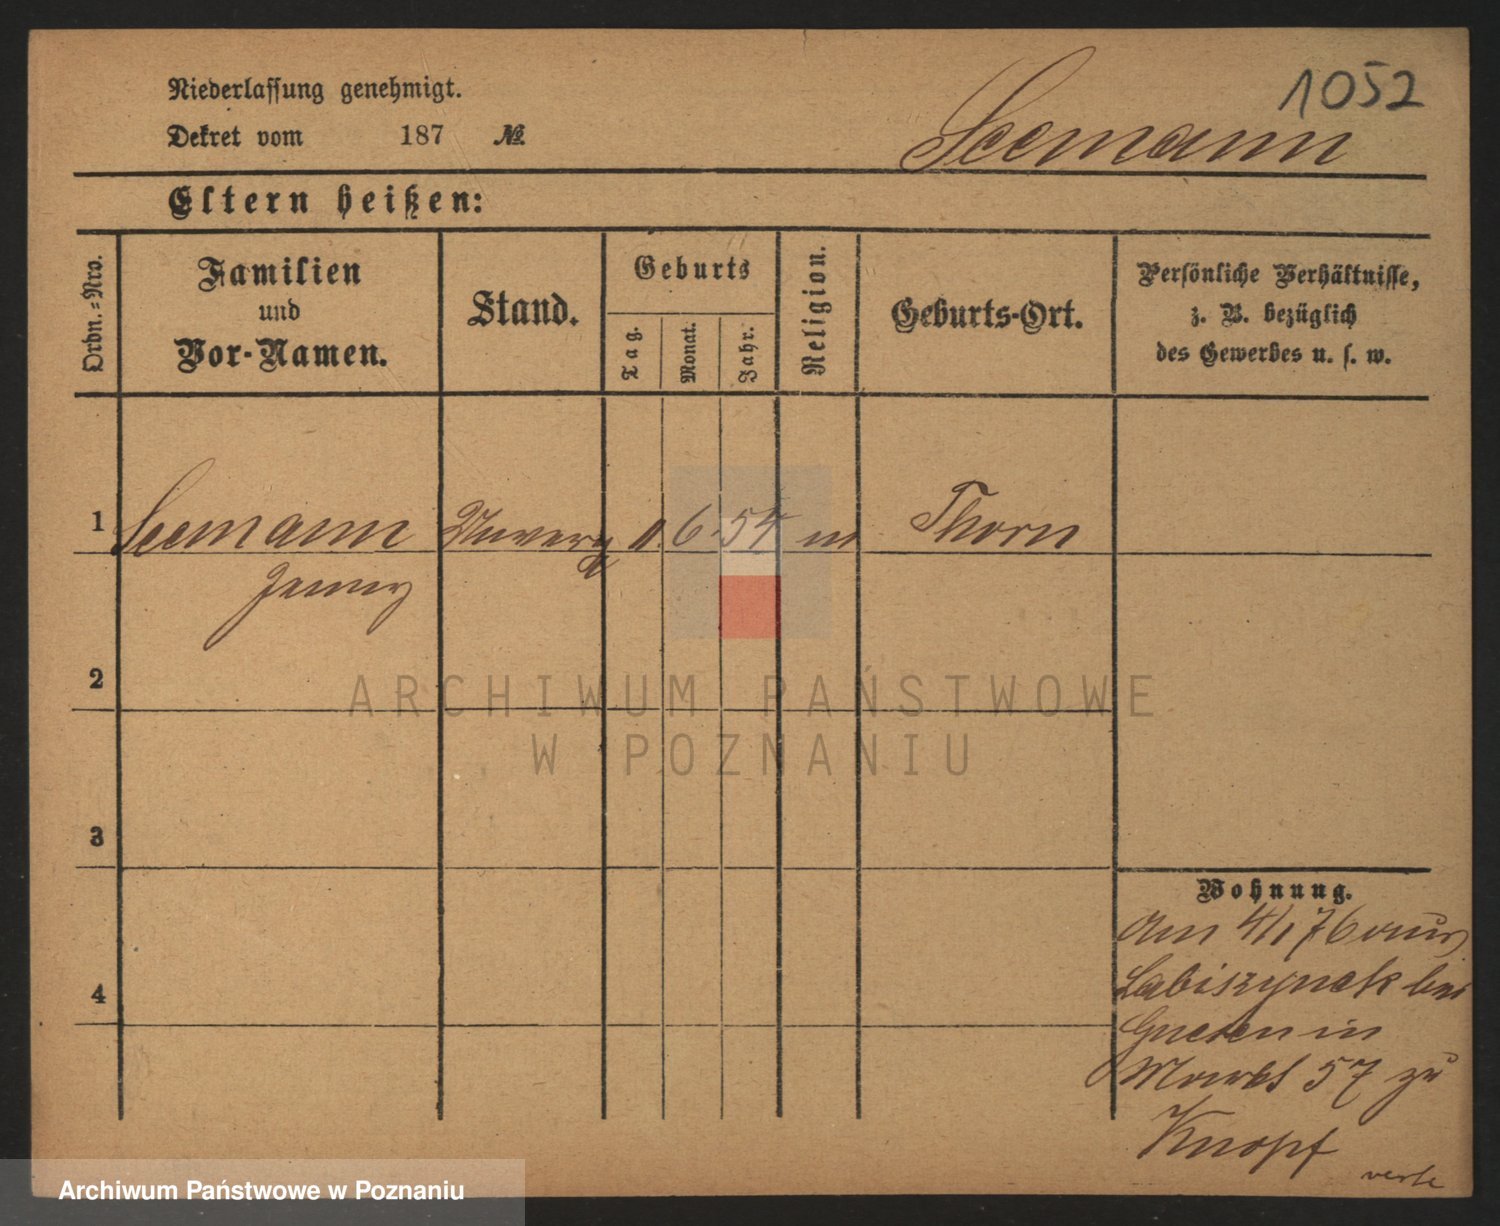 1052
Niederlassung genehmigt.
Dekret vom 187 №
Seemann
Eltern heißen:
Ordn.=Nro.
Familien
und
Vor-Namen.
Stand.
Geburts
Tag.
Monat.
Jahr.
Religion.
Geburts-Ort.
Persönliche Verhältnisse,
z. B. bezüglich
des Gewerbes u. s. w.
1 Seemann Unverh 11. 6. 54 Thorn
Jenny
2
3
4
Wohnung.
Am 4/1 76 aus
Labiszynek bei
Gnesen in
Markt 57 zu
Knopf
verte
ARCHIWUM PAŃSTWOWE
W POZNANIU
Archiwum Państwowe w Poznaniu